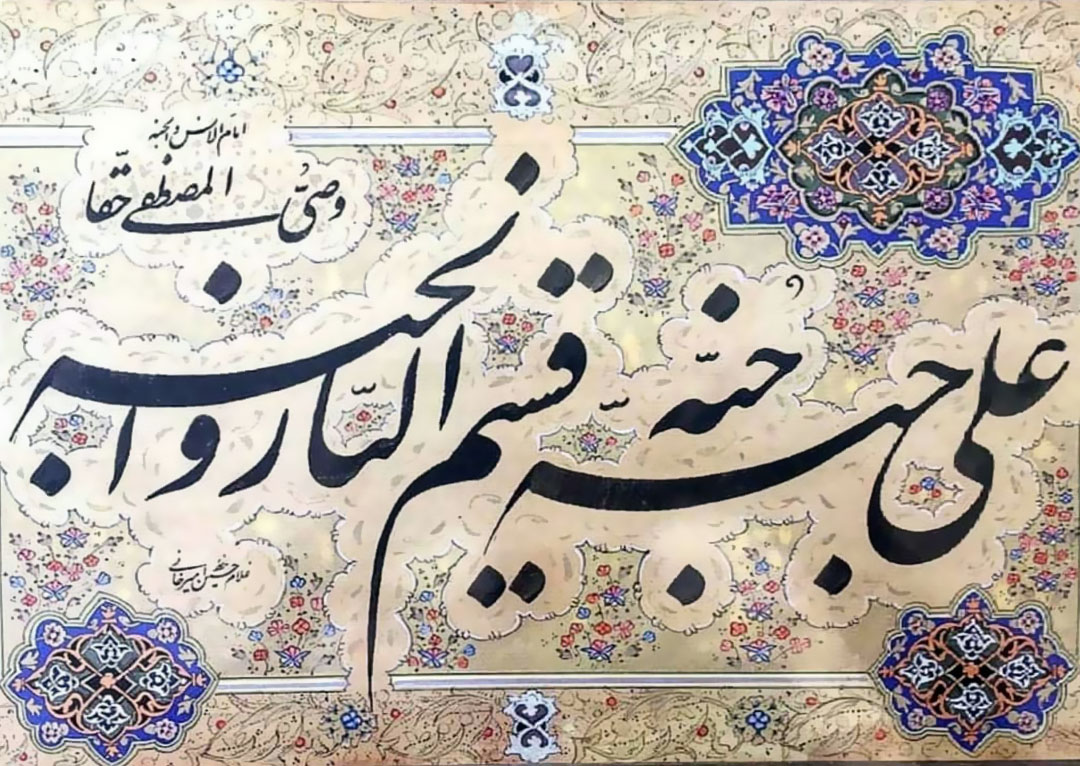 علی حبه جنه
قسیم النار و الجنه
وصیّ المصطفی حقا
امام الانس و الجنه
غلامحسین امیرخانی